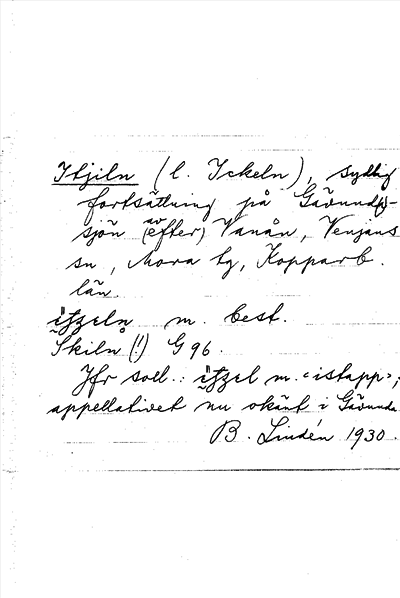 Itjiln (l. Ickeln), sydlig
fortsättning på Gävund(s)-
sjön (av efter) Vanån, Venjans
sn, Mora tg, Kopparb.
län.
itzeln m. best.
Skiln (!) G 96.
Jfr soll.: itzel m. <istapp>;
appellativet nu okänt i Gävunda.
B. Lindén 1930.